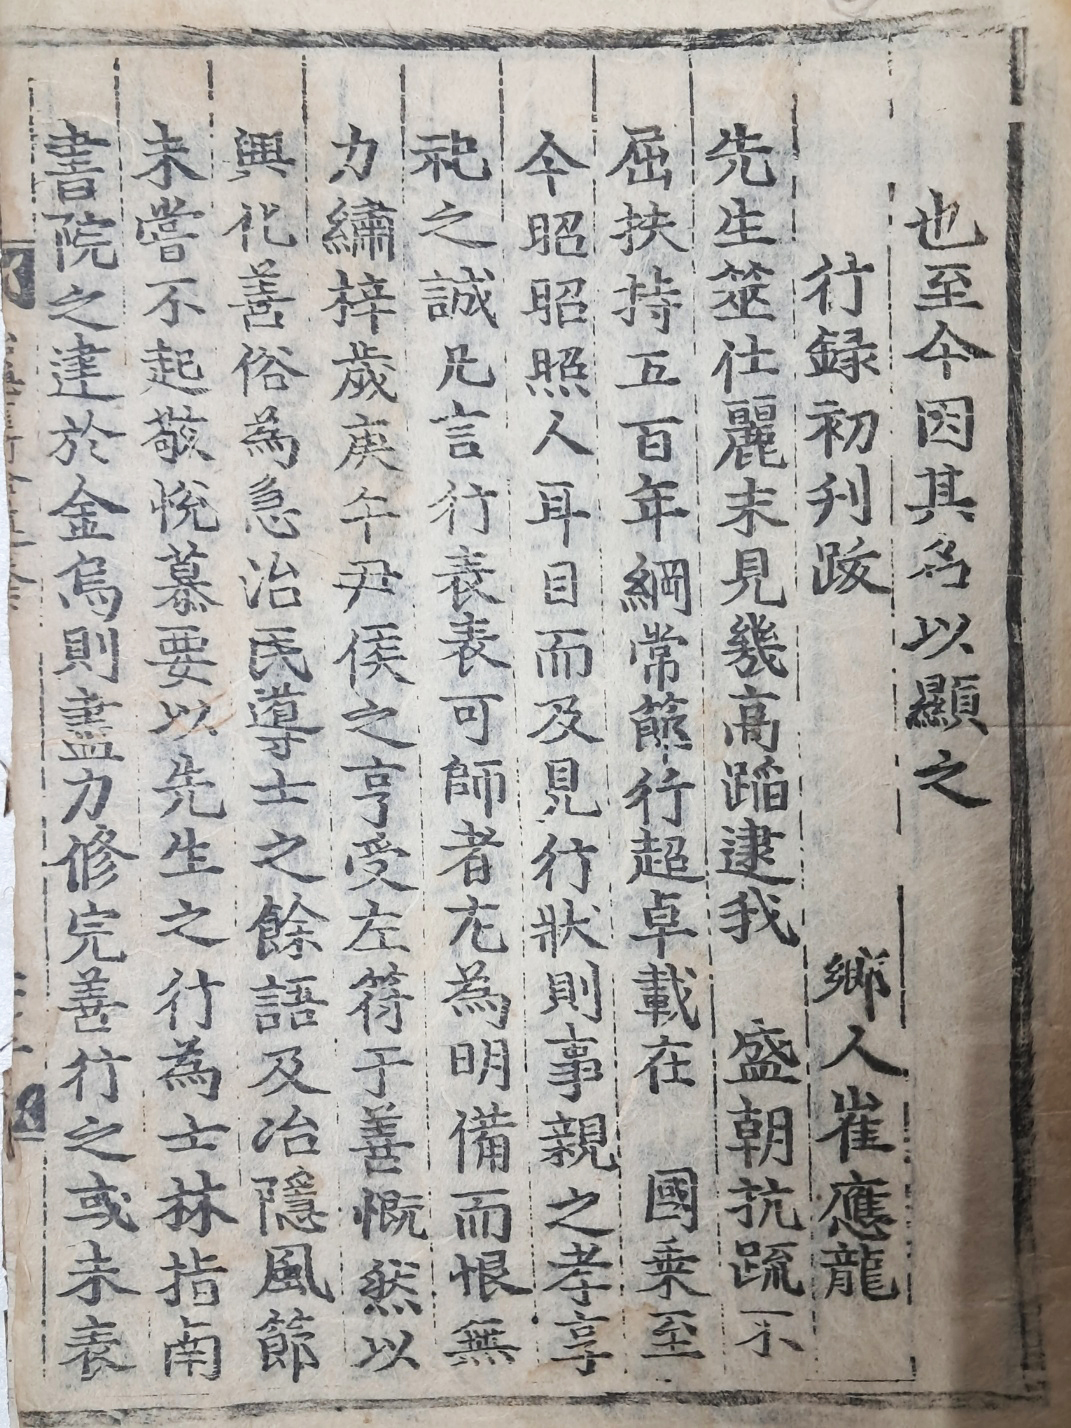 也至今因其名以顯之
行録初刋跋 鄉人崔應龍
先生筮仕麗末見幾高蹈逮我 盛朝抗䟽不
屈扶持五百年綱常節行超卓載在 國乗至
今昭昭照人耳目而及見行狀則事親之孝享
祀之誠凡言行表表可師者尤為明備而恨無
力繡梓歲庚午尹侯之亨受左符于善慨然以
興化善俗為急治民導士之餘語及冶隱風節
未嘗不起敬悅慕要以先生之行為士林指南
書院之建於金烏則盡力修完善行之或未表